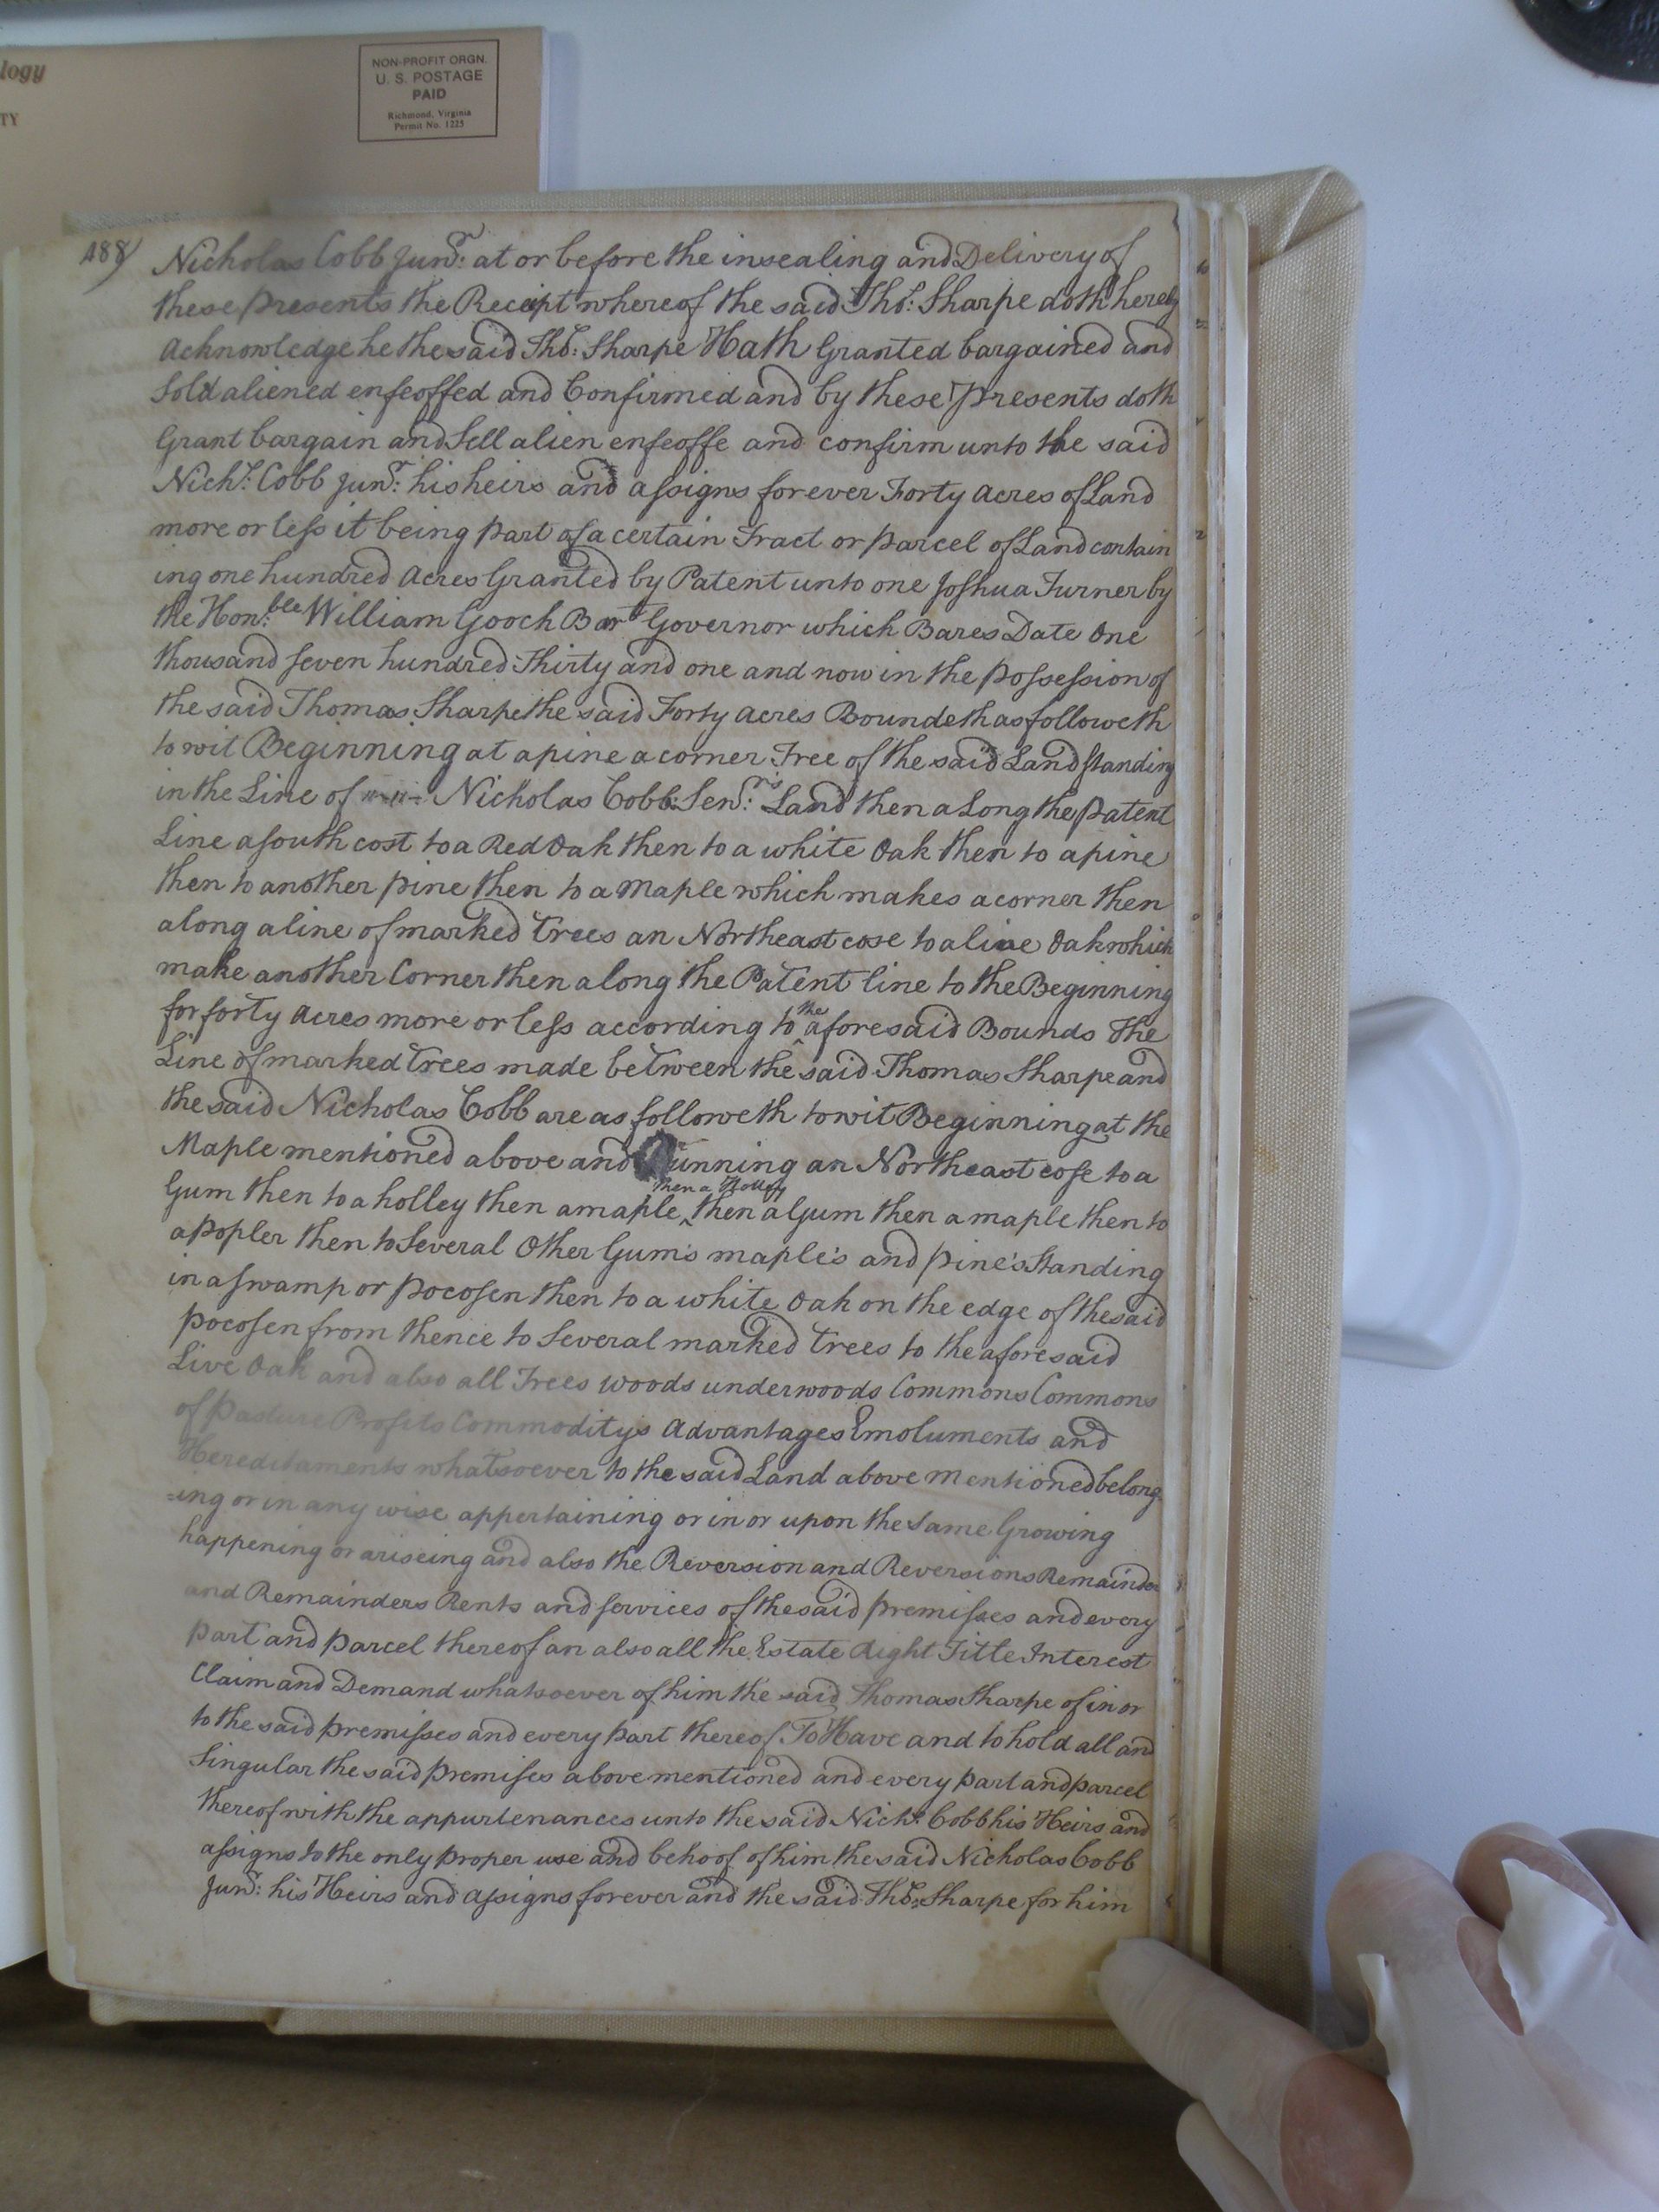 logy
TY
NON-PROFIT ORGN.
U. S. POSTAGE
PAID
Richmond, Virginia
Permit No. 1225
488
Nicholas Cobb Junr: at or before the insealing and Delivery of
these presents the Receipt whereof the said Tho.s: Sharpe doth hereby
acknowledge he the said Tho.s: Sharpe Hath Granted bargained and
Sold aliened enfeoffed and Confirmed and by these presents doth
Grant bargain and Sell alien enfeoffe and confirm unto the said
Nich.s: Cobb Junr: his heirs and assigns for ever Forty acres of Land
more or less it being part of a certain Tract or parcel of Land contain
ing one hundred acres Granted by Patent unto one Joshua Turner by
the Hon:ble William Gooch Bart Governor which Bares Date One
thousand seven hundred Thirty and one and now in the possession of
the said Thomas Sharpe the said Forty acres Boundeth as followeth
to wit Beginning at a pine a corner Tree of the said Land standing
in the Line of Nicholas Cobb: Senr:'s Land then a Long the patent
Line a south cost to a Red Oak then to a white Oak then to a pine
then to another pine then to a maple which makes a corner then
along a line of marked trees an Northeast cose to a live Oak which
make another Corner then along the Patent line to the Beginning
for forty acres more or less according to the aforesaid Bounds The
Line of marked trees made between the said Thomas Sharpe and
the said Nicholas Cobb are as followeth to wit Beginning at the
Maple mentioned above and Running an Northeast cose to a
Gum then to a holley then a maple then a Holley then a Gum then a maple then to
a popler then to Several Other Gum's maple's and pine's standing
in a swamp or pocosen then to a white Oak on the edge of the said
pocosen from thence to Several marked trees to the aforesaid
Live Oak and also all Trees woods underwoods Commons Commons
of pasture Profits Commoditys advantages Emoluments and
Hereditaments whatsoever to the said Land above mentioned belong
=ing or in any wise appertaining or in or upon the same Growing
happening or ariseing and also the Reversion and Reversions Remainder
and Remainders Rents and services of the said premisses and every
part and parcel thereof an also all the Estate Right Title Interest
Claim and Demand whatsoever of him the said Thomas Sharpe of in or
to the said premisses and every part thereof To Have and to hold all and
Singular the said premises above mentioned and every part and parcel
thereof with the appurtenances unto the said Nich.s Cobb his Heirs and
assigns to the only proper use and behoof of him the said Nicholas Cobb
Junr: his Heirs and assigns forever and the said Tho.s: Sharpe for him